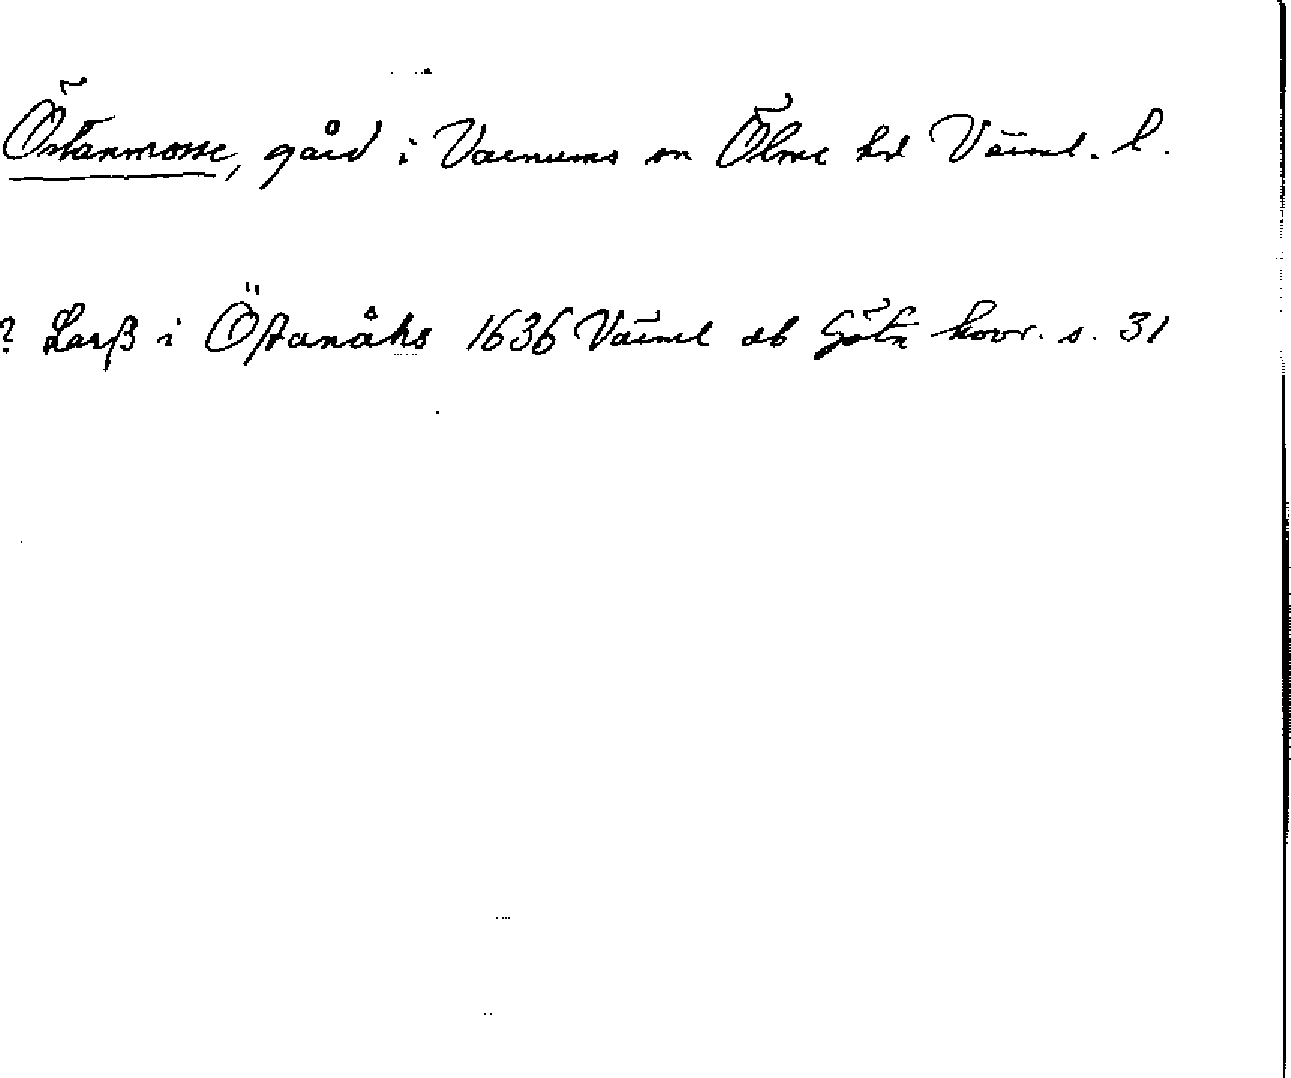 Östanmosse, gård i Varnums sn Ölme hd Värml. l.
? Larß i Östanåhs 1636 Värml db Göta hovr. s. 31